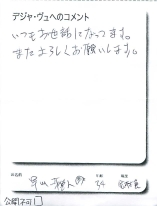 デジャ・ヴュへのコメント
いつもお世話になってます。
また よろしくお願いします。
お名前
年齢
54
職業
会社員
公開不可